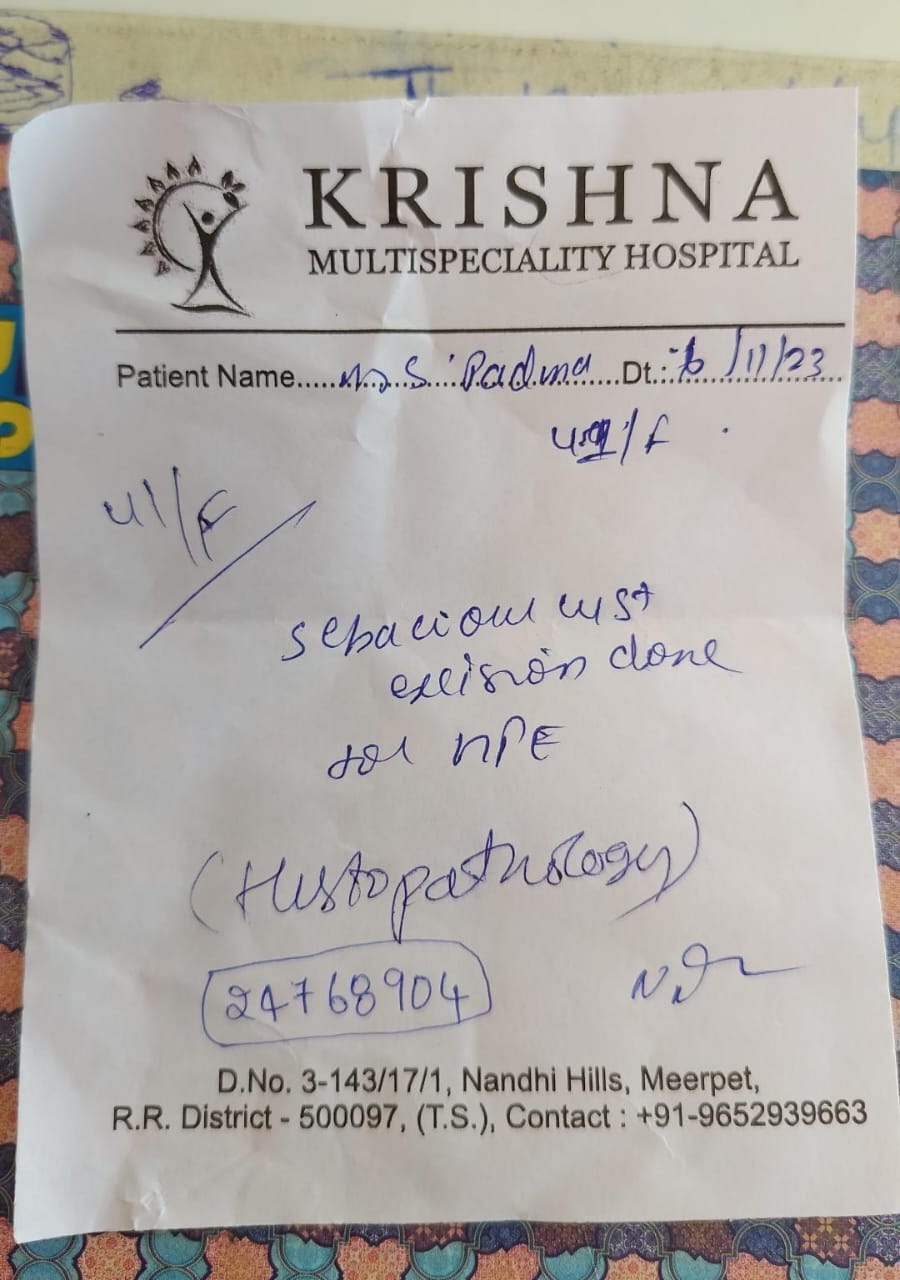 KRISHNA
MULTISPECIALITY HOSPITAL
Patient Name..... S. Padma ......Dt.: /11/23
41/F
41/F
Sebacious cyst
excision done
for HPE
(Histopathology)
24768904
D.No. 3-143/17/1, Nandhi Hills, Meerpet,
R.R. District - 500097, (T.S.), Contact : +91-9652939663